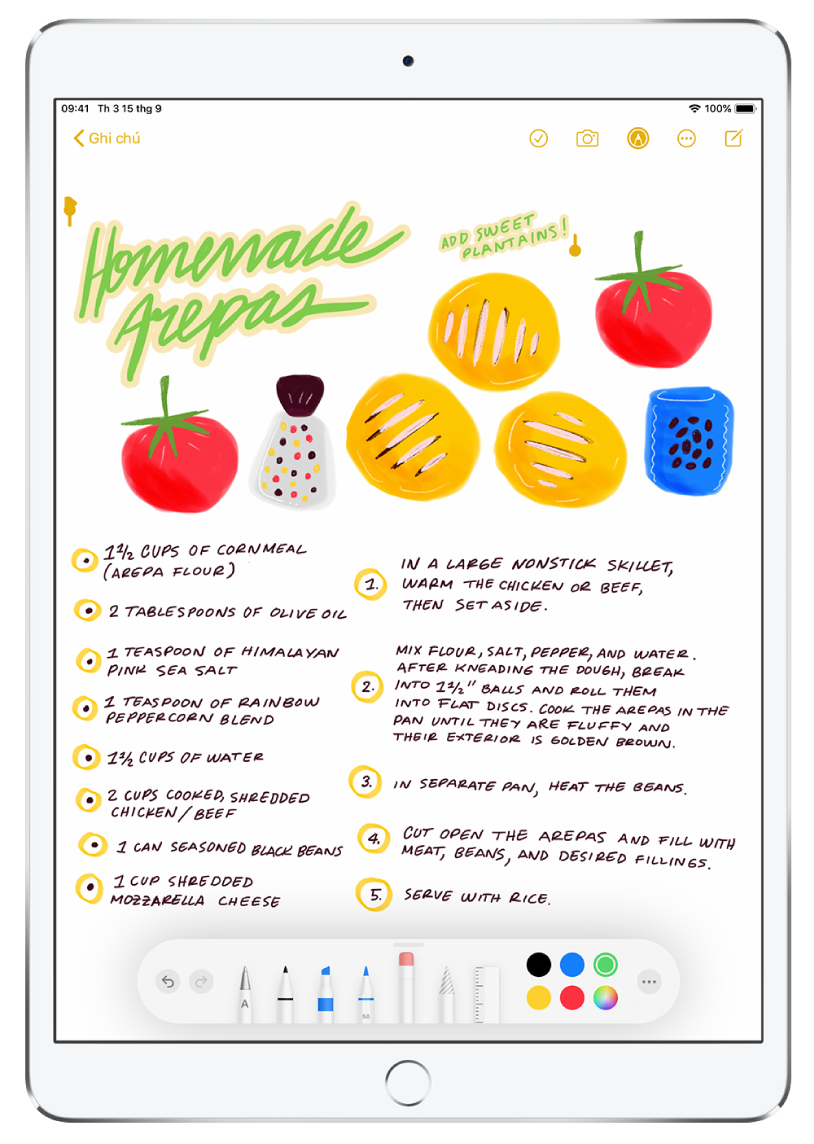 09:41 Th 3 15 thg 9
100%
Ghi chú
Homemade
Arepas
ADD SWEET
PLANTAINS!
1 1/2 CUPS OF CORNMEAL
(AREPA FLOUR)
2 TABLESPOONS OF OLIVE OIL
1 TEASPOON OF HIMALAYAN
PINK SEA SALT
1 TEASPOON OF RAINBOW
PEPPERCORN BLEND
1 1/2 CUPS OF WATER
2 CUPS COOKED, SHREDDED
CHICKEN/BEEF
1 CAN SEASONED BLACK BEANS
1 CUP SHREDDED
MOZZARELLA CHEESE
1. IN A LARGE NONSTICK SKILLET,
WARM THE CHICKEN OR BEEF,
THEN SET ASIDE.
2. MIX FLOUR, SALT, PEPPER, AND WATER.
AFTER KNEADING THE DOUGH, BREAK
INTO 1 1/2" BALLS AND ROLL THEM
INTO FLAT DISCS. COOK THE AREPAS IN THE
PAN UNTIL THEY ARE FLUFFY AND
THEIR EXTERIOR IS GOLDEN BROWN.
3. IN SEPARATE PAN, HEAT THE BEANS.
4. CUT OPEN THE AREPAS AND FILL WITH
MEAT, BEANS, AND DESIRED FILLINGS.
5. SERVE WITH RICE.
A
50